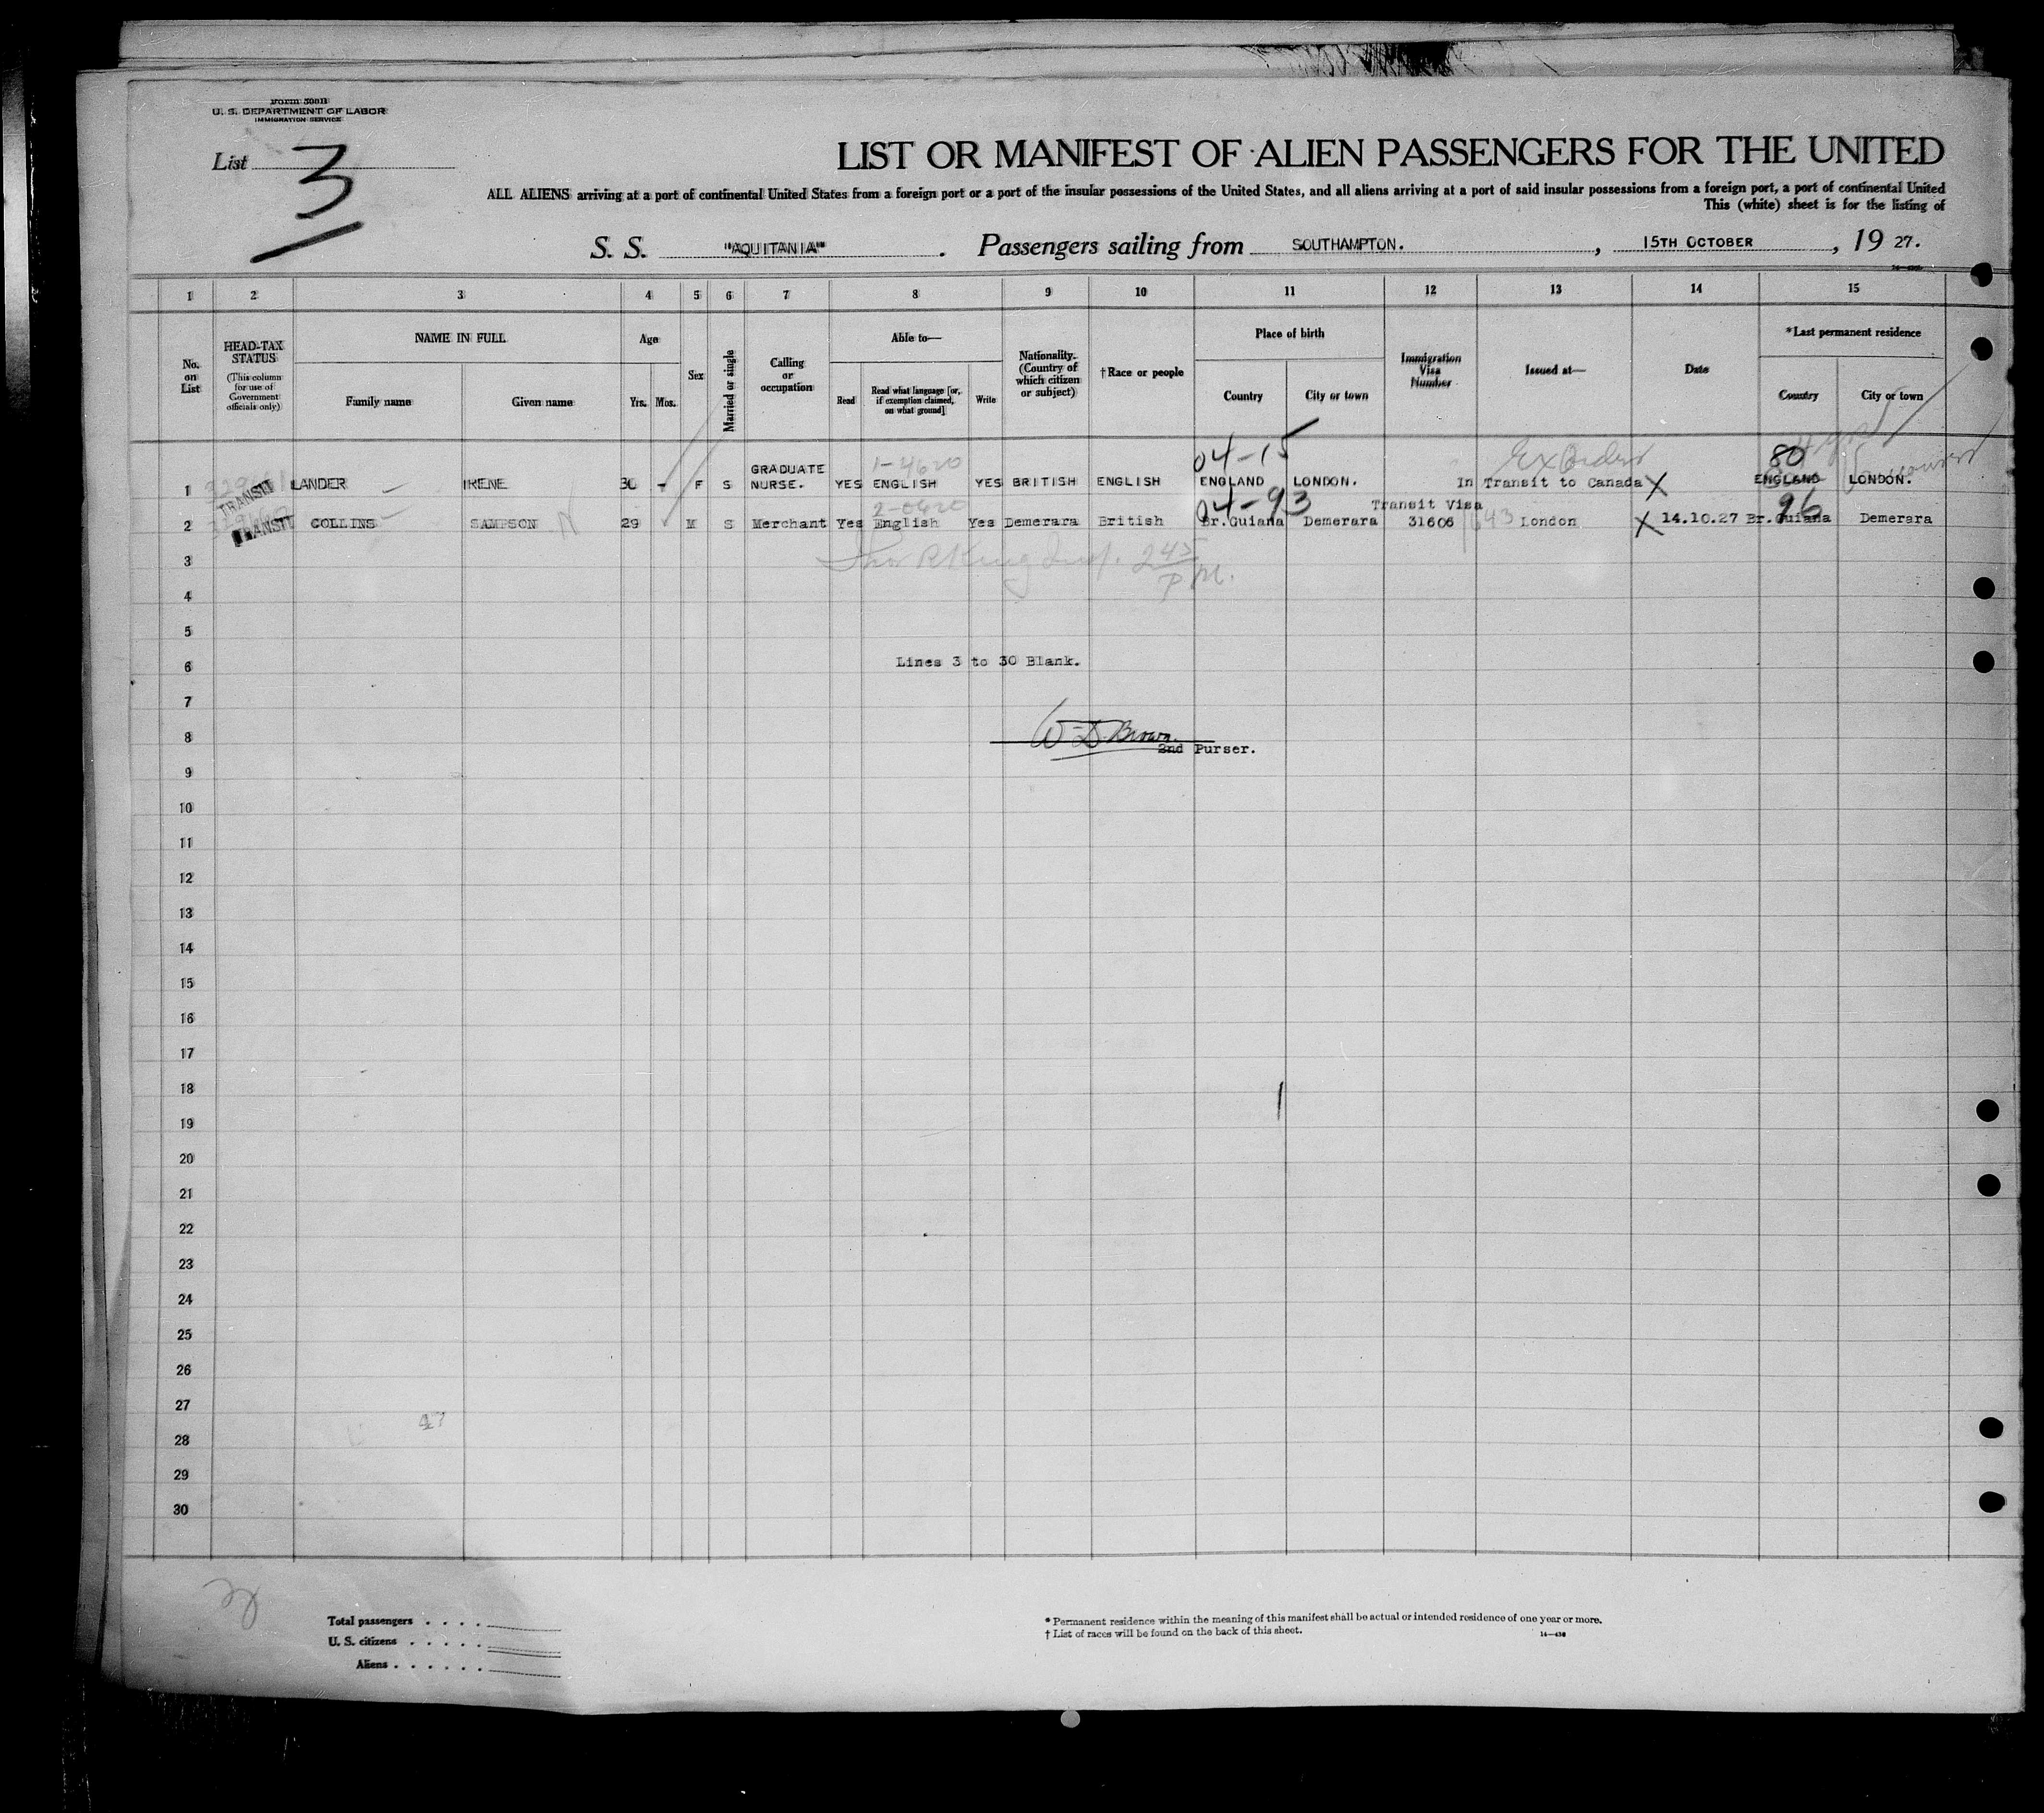 Form 500B
U. S. DEPARTMENT OF LABOR
IMMIGRATION SERVICE
List 3
LIST OR MANIFEST OF ALIEN PASSENGERS FOR THE UNITED
ALL ALIENS arriving at a port of continental United States from a foreign port or a port of the insular possessions of the United States, and all aliens arriving at a port of said insular possessions from a foreign port, a port of continental United
This (white) sheet is for the listing of
S. S. "AQUITANIA" . Passengers sailing from SOUTHAMPTON. , 15TH OCTOBER , 19 27.
1 2 3 4 5 6 7 8 9 10 11 12 13 14 15
No. on List
HEAD-TAX STATUS
(This column for use of Government officials only)
NAME IN FULL
Family name
Given name
Age
Yrs.
Mos.
Sex
Married or single
Calling or occupation
Able to—
Read
Read what language [or, if exemption claimed, on what ground]
Write
Nationality. (Country of which citizen or subject)
†Race or people
Place of birth
Country
City or town
Immigration Visa Number
Issued at—
Date
*Last permanent residence
Country
City or town
04-15
80
1-4620
1 TRANSIT LANDER IRENE 30 - F S GRADUATE NURSE. YES ENGLISH YES BRITISH ENGLISH ENGLAND LONDON. In Transit to Canada X ENGLAND LONDON.
04-93
96
2-0620
2 TRANSIT COLLINS SAMPSON 29 M S Merchant Yes English Yes Demerara British Br.Guiana Demerara Transit Visa 31606 London X 14.10.27 Br.Guiana Demerara
3
4
5
6 Lines 3 to 30 Blank.
7
8 W D Brown.
2nd Purser.
9
10
11
12
13
14
15
16
17
18
19
20
21
22
23
24
25
26
27
47
28
29
30
Total passengers . . . .
U. S. citizens . . . . .
Aliens . . . . . .
* Permanent residence within the meaning of this manifest shall be actual or intended residence of one year or more.
† List of races will be found on the back of this sheet.
14—430